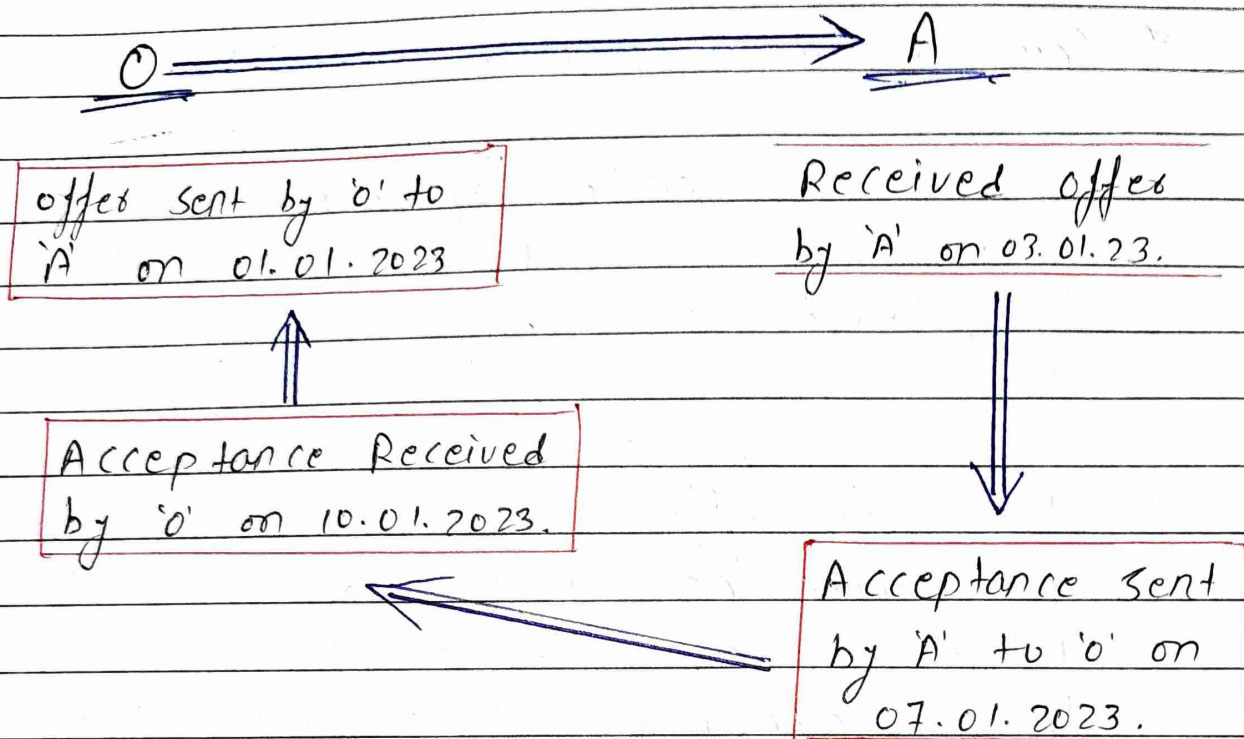 O
A
offer sent by 'O' to
'A' on 01.01.2023
Received offer
by 'A' on 03.01.23.
Acceptance Received
by 'O' on 10.01.2023.
Acceptance sent
by 'A' to 'O' on
07.01.2023.